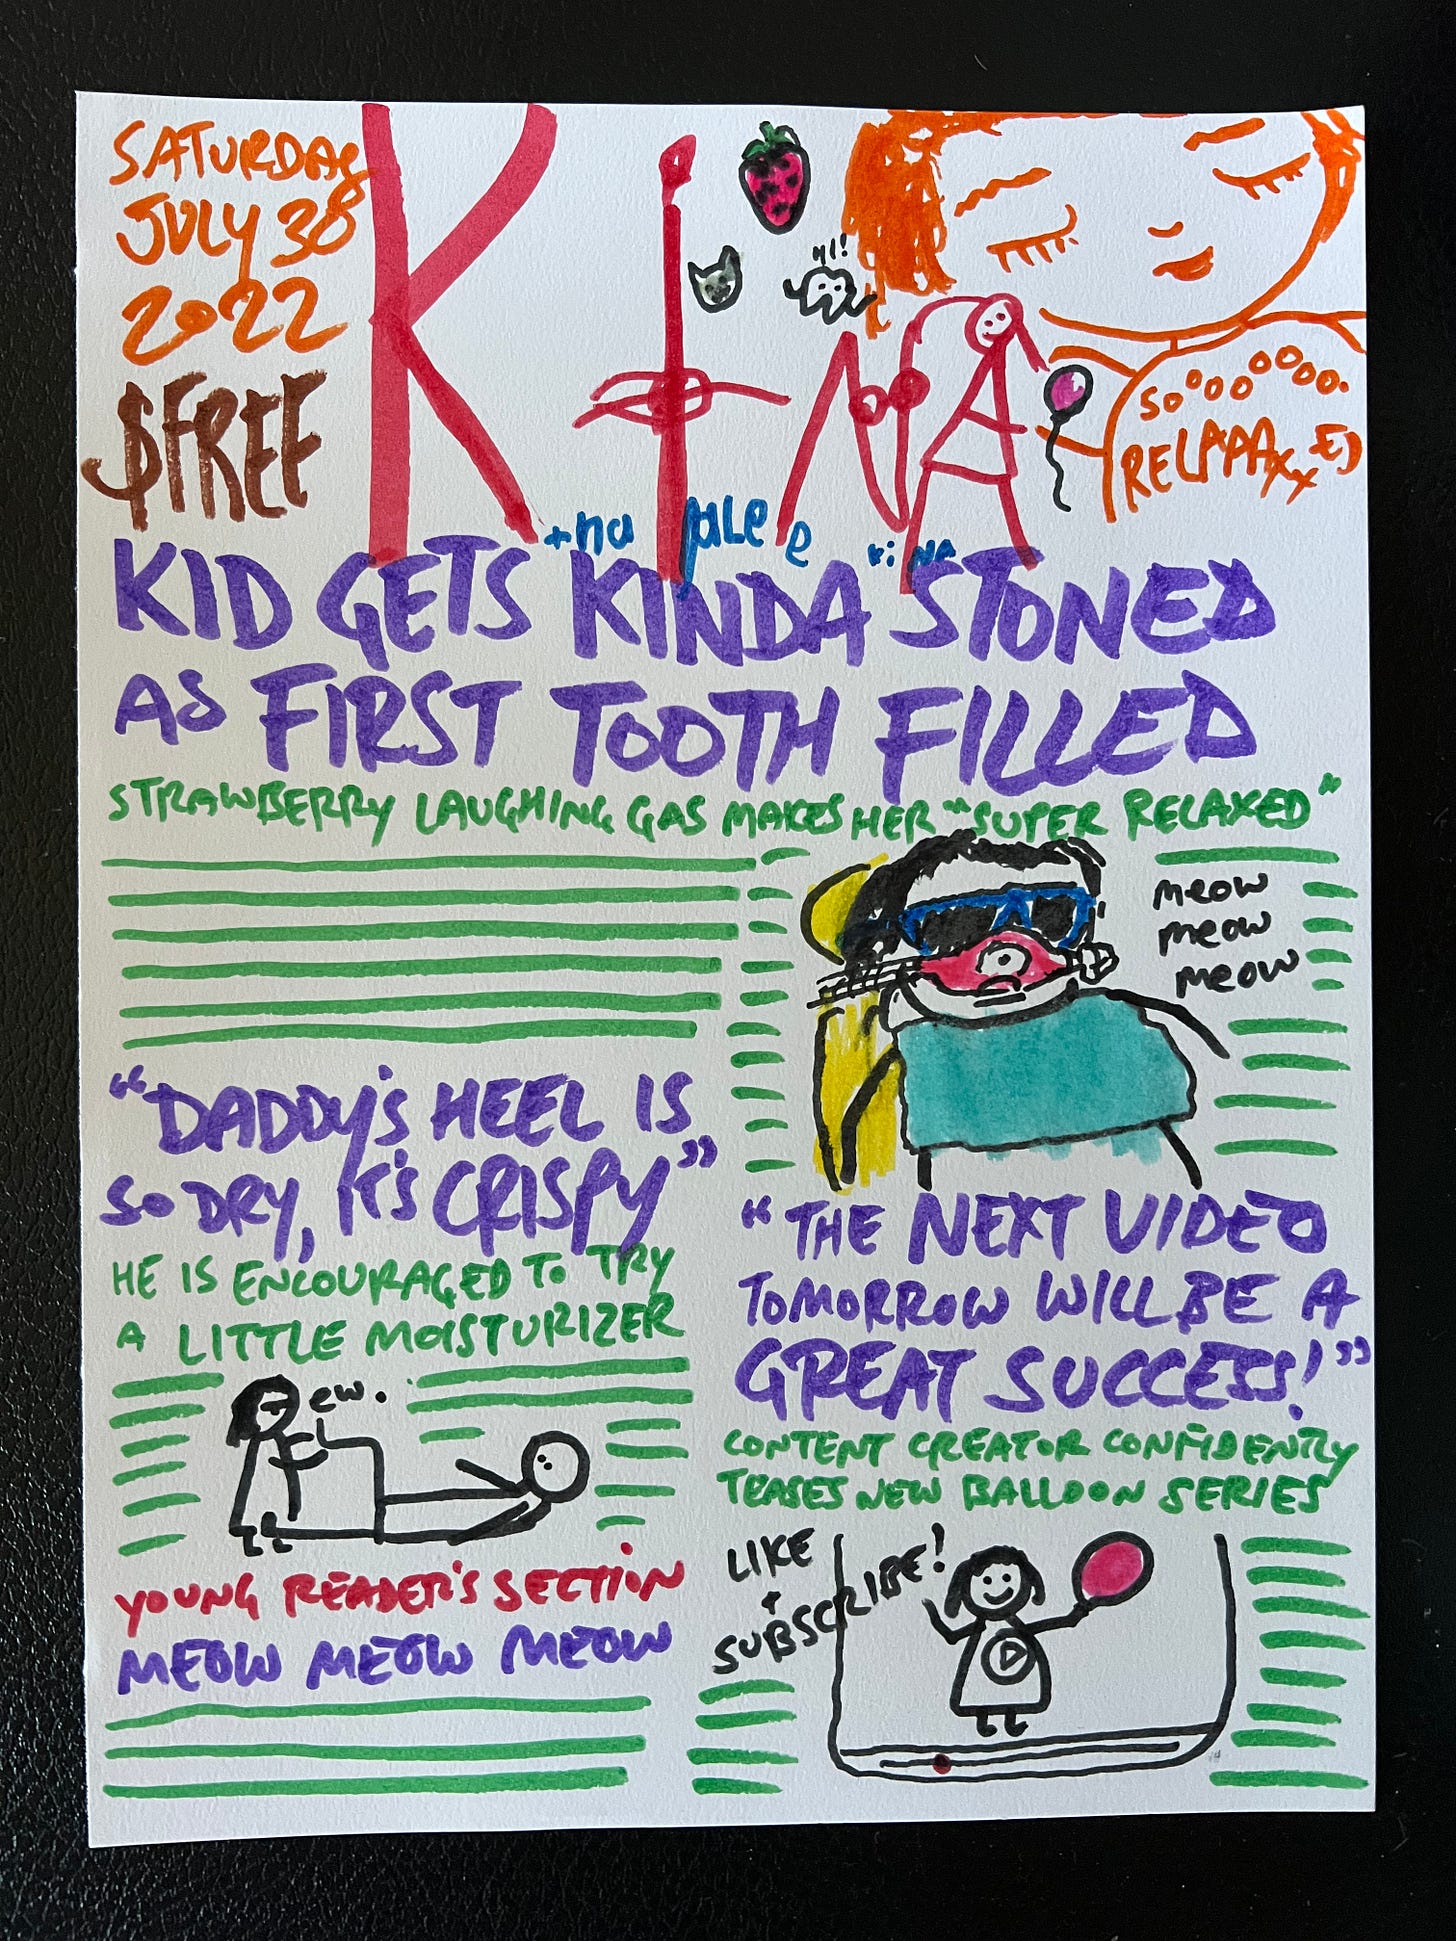 SATURDAY
JULY 30
2022
$FREE
KINA
HI!
SOOOOOOOO.
RELAAAXXED
KiNA
KID GETS KINDA STONED
AS FIRST TOOTH FILLED
STRAWBERRY LAUGHING GAS MAKES HER "SUPER RELAXED"
meow
meow
meow
"DADDY'S HEEL IS
SO DRY, IT'S CRISPY"
HE IS ENCOURAGED TO TRY
A LITTLE MOISTURIZER
ew.
"THE NEXT VIDEO
TOMORROW WILL BE A
GREAT SUCCESS!"
CONTENT CREATOR CONFIDENTLY
TEASES NEW BALLOON SERIES
LIKE
+
SUBSCRIBE!
YOUNG READER'S SECTION
MEOW MEOW MEOW